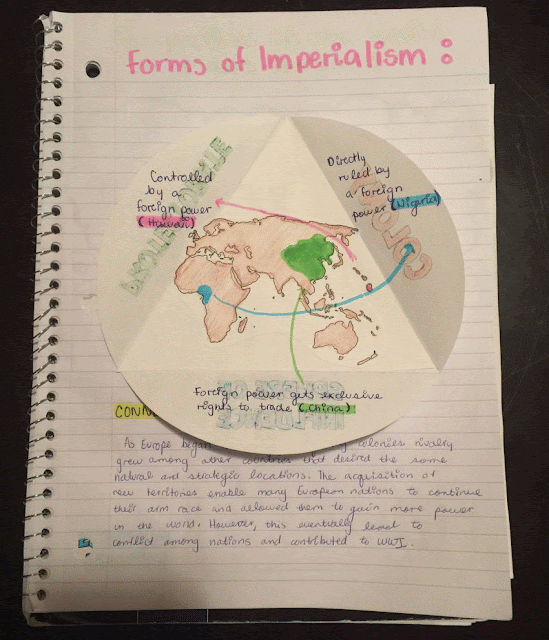 Forms of Imperialism:
Controlled
by a
foreign power
(Hawaii)
Directly
ruled by
a foreign
power (Nigeria)
Foreign power gets exclusive
rights to trade (China)
CONN
As Europe began colonies rivalry
grew among other countries that desired the same
natural and strategic locations. The acquisition of
new territories enable many European nations to continue
their arm race and allowed them to gain more power
in the world. However, this eventually lead to
conflict among nations and contributed to WWI.